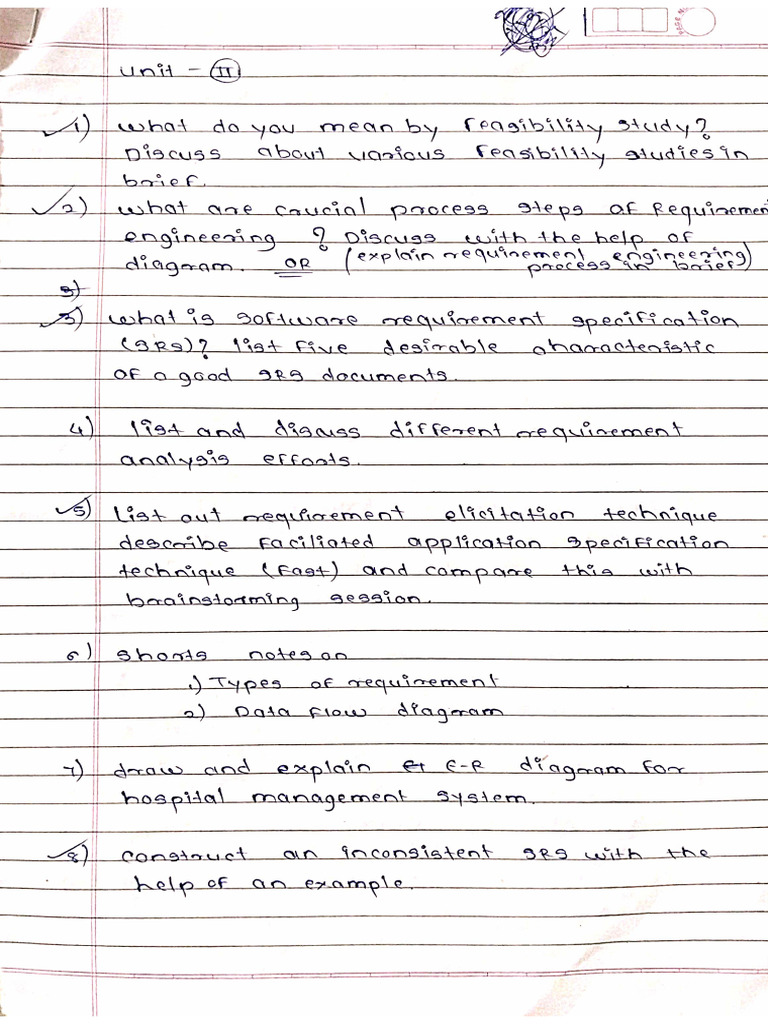 Unit - II
1) What do you mean by feasibility study?
Discuss about various feasibility studies in
brief.
2) What are crucial process steps of Requirement
engineering ? Discuss with the help of
diagram. OR (explain requirement engineering
process in brief)
3)
3) What is software requirement specification
(SRS)? list five desirable characteristic
of a good SRS documents.
4) list and discuss different requirement
analysis efforts.
5) List out requirement elicitation technique
describe faciliated application specification
technique (fast) and compare this with
brainstorming session.
6) Shorts notes on
1) Types of requirement
2) Data flow diagram
7) draw and explain E-R diagram for
hospital management system.
8) construct an inconsistent SRS with the
help of an example.